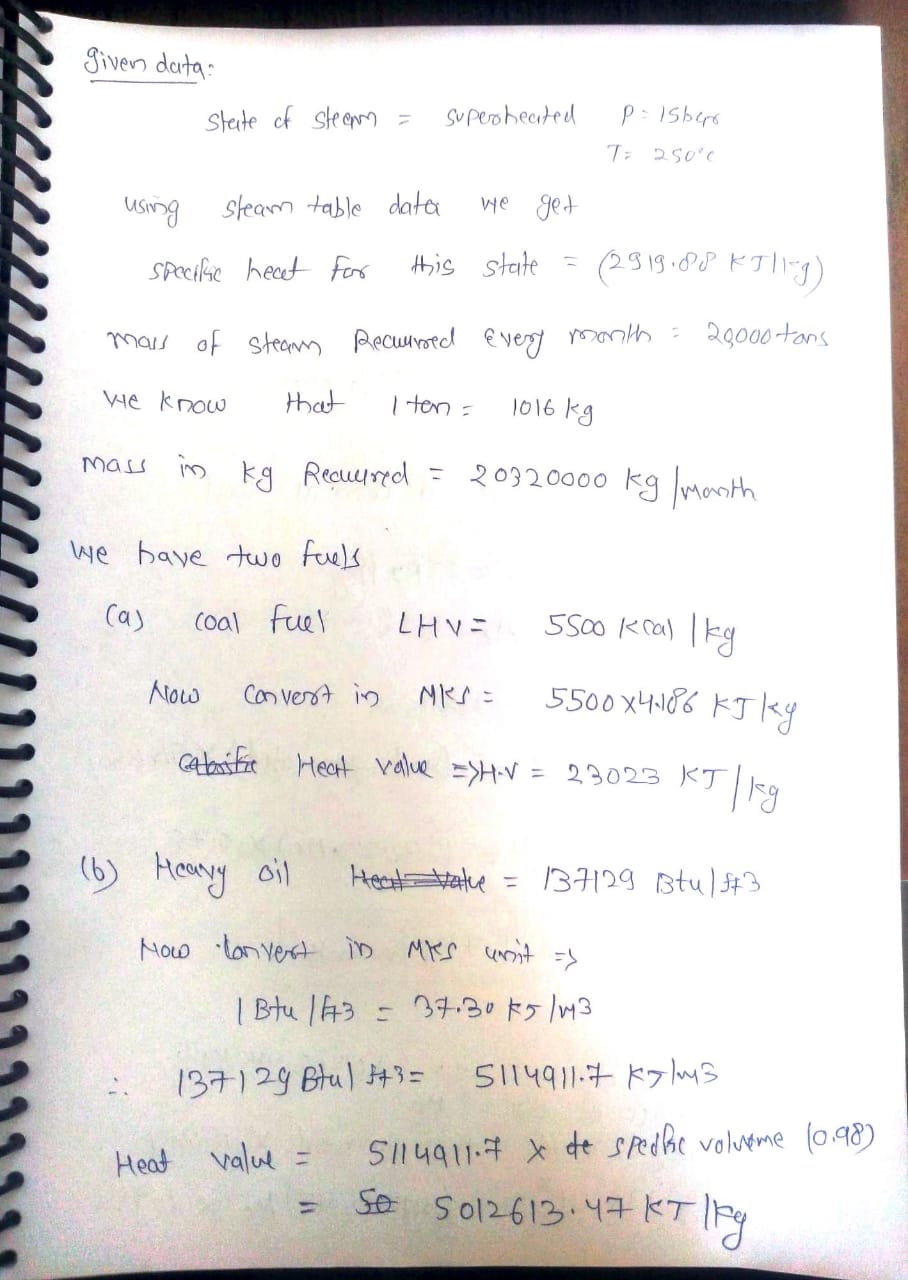 given data:
State of steam = superheated P = 15bar
T = 250°C
using steam table data we get
specific heat for this state = (2919.88 KJ/kg)
mass of steam Required every month = 20000 tons
we know that 1 ton = 1016 kg
mass in kg Required = 20320000 kg/month
we have two fuels
(a) coal fuel LHV = 5500 Kcal/kg
Now convert in MKS = 5500x4.186 KJ/kg
Calorific Heat value => H.V = 23023 KJ/kg
(b) Heavy oil Heat Value = 137129 Btu/ft3
Now convert in MKS unit =>
1 Btu/ft3 = 37.30 KJ/m3
∴ 137129 Btu/ft3 = 5114911.7 KJ/m3
Heat value = 5114911.7 x specific volume (0.98)
= 50 5012613.47 KJ/kg